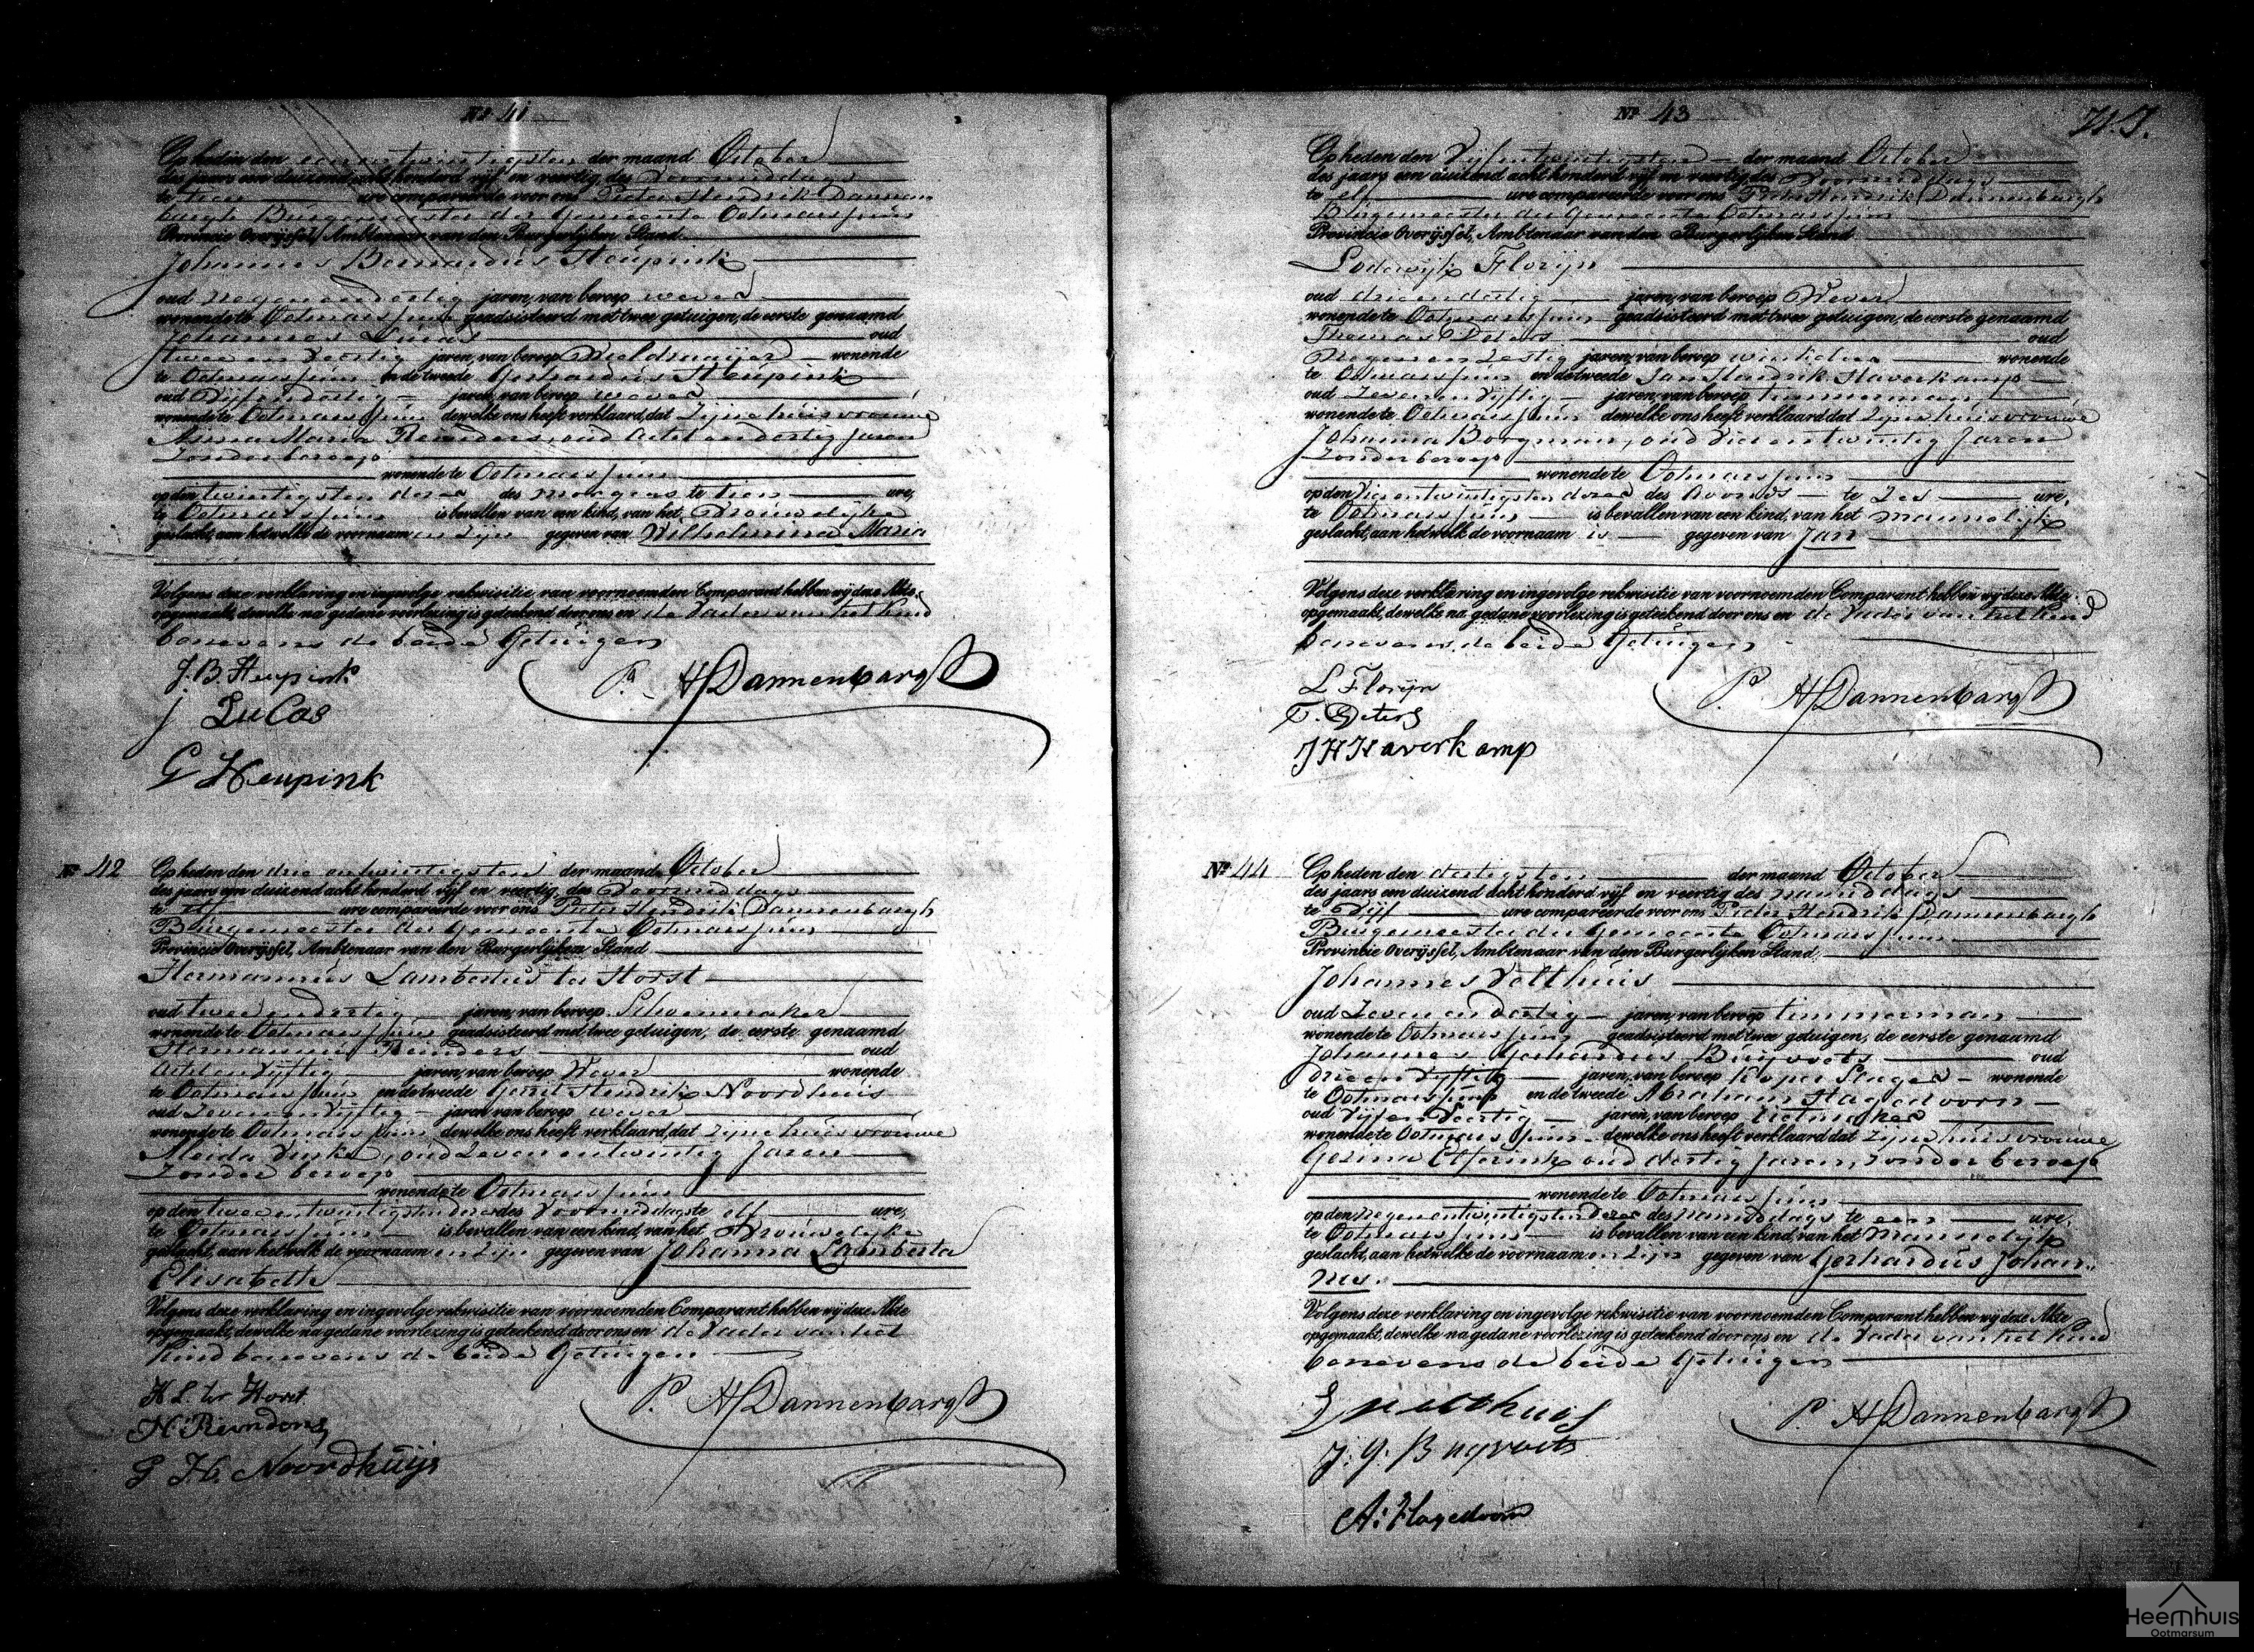 No 41
Op heden den eenentwintigsten der maand October
des jaars een duizend acht honderd vijf en veertig, des Voormiddags
te tien ure compareerde voor ons Pieter Hendrik Dannen
bargh Burgemeester der Gemeente Ootmarssum
Provincie Overijssel, Ambtenaar van den Burgerlijken Stand
Johannes Bernardus Heupink
oud negenendertig jaren, van beroep wever
wonende te Ootmarssum geadsisteerd met twee getuigen, de eerste genaamd
Johannes Lucas oud
twee en veertig jaren, van beroep Veldwagter wonende
te Ootmarssum en de tweede Gerhardus Heupink
oud Vijfendertig jaren, van beroep wever
wonende te Ootmarssum dewelke ons heeft verklaard, dat Zijne huisvrouwe
Anna Maria Reinders, oud Achtendertig Jaren
Zonder beroep
wonende te Ootmarssum
op den twintigsten dezer des morgens te tien ure,
te Ootmarssum is bevallen van een kind, van het Vrouwelijke
geslacht, aan hetwelke de voornaam en Zijn gegeven van Wilhelmina Maria
Volgens deze verklaring en ingevolge rekwisitie van voornoemden Comparant hebben wij deze Akte
opgemaakt, dewelke na gedane voorlezing is geteekend door ons en de Vader van het kind
benevens de beide Getuigen
J. B. Heupink
P. H Dannenbargh
j LuCas
G Heupink
No 42
Op heden den drie entwintigsten der maand October
des jaars een duizend acht honderd vijf en veertig, des Voormiddags
te elf ure compareerde voor ons Pieter Hendrik Dannenbargh
Burgemeester der Gemeente Ootmarssum
Provincie Overijssel, Ambtenaar van den Burgerlijken Stand
Hermannus Lambertus ter Horst
oud twee endertig jaren, van beroep Schoenmaker
wonende te Ootmarssum geadsisteerd met twee getuigen, de eerste genaamd
Hermannus Reinders oud
Achtenvijftig jaren, van beroep Wever wonende
te Ootmarssum en de tweede Gerrit Hendrik Noordhuis
oud Zevenenvijftig jaren van beroep wever
wonende te Ootmarssum dewelke ons heeft verklaard, dat Zijne huisvrouwe
Aleida, oud Zevenentwintig Jaren
Zonder beroep
wonende te Ootmarssum
op den tweeentwintigsten dezer des Voormiddags te elf ure,
te Ootmarssum is bevallen van een kind, van het Vrouwelijke
geslacht, aan hetwelk de voornaam en Zijn gegeven van Johanna Lamberta
Elisabeth
Volgens deze verklaring en ingevolge rekwisitie van voornoemden Comparant hebben wij deze Akte
opgemaakt, dewelke na gedane voorlezing is geteekend door ons en de Vader van het
Kind benevens de beide Getuigen
H L. ter Horst
P. H Dannenbargh
H. Reinders
G H. Noordhuijs
No 43
Op heden den Vijfentwintigsten der maand October
des jaars een duizend acht honderd vijf en veertig des Voormiddags
te elf ure compareerde voor ons Pieter Hendrik Dannenbargh
Burgemeester der Gemeente Ootmarssum
Provincie Overijssel, Ambtenaar van den Burgerlijken Stand
Lodewijk Florijn
oud drieendertig jaren, van beroep Wever
wonende te Ootmarssum geadsisteerd met twee getuigen, de eerste genaamd
Thomas Peters oud
Negenenzestig jaren, van beroep winkelier wonende
te Ootmarssum en de tweede Jan Hendrik Haverkamp
oud Zevenenvijftig jaren, van beroep timmerman
wonende te Ootmarssum dewelke ons heeft verklaard dat Zijne huisvrouwe
Johanna Borgman, oud Vierentwintig Jaren
Zonder beroep
wonende te Ootmarssum
op den Vierentwintigsten dezer des Avonds te Zes ure,
te Ootmarssum is bevallen van een kind, van het mannelijk
geslacht, aan hetwelk de voornaam is gegeven van Jan
Volgens deze verklaring en ingevolge rekwisitie van voornoemden Comparant hebben wij deze Akte
opgemaakt, dewelke na gedane voorlezing is geteekend door ons en de Vader van het Kind
benevens de beide Getuigen
L Florijn
P. H Dannenbargh
T. Peters
J H Haverkamp
No 44
Op heden den dertigsten der maand October
des jaars een duizend acht honderd vijf en veertig des namiddags
te Vijf ure compareerde voor ons Pieter Hendrik Dannenbargh
Burgemeester der Gemeente Ootmarssum
Provincie Overijssel, Ambtenaar van den Burgerlijken Stand
Johannes Velthuis
oud Zeven en dertig jaren, van beroep timmerman
wonende te Ootmarssum geadsisteerd met twee getuigen, de eerste genaamd
Johannes Gerhardus Buijvoets oud
drieenvijftig jaren, van beroep Koper Slager wonende
te Ootmarssum en de tweede Abraham Hagedoorn
oud Vijfenveertig jaren, van beroep
wonende te Ootmarssum dewelke ons heeft verklaard dat Zijne huisvrouwe
Gesina Elferink oud dertig Jaren, zonder beroep
wonende te Ootmarssum
op den negenentwintigsten dezer des namiddags te een ure,
te Ootmarssum is bevallen van een kind, van het Mannelijk
geslacht, aan hetwelke de voornaam en Zijn gegeven van Gerhardus Johan„
nes.
Volgens deze verklaring en ingevolge rekwisitie van voornoemden Comparant hebben wij deze Akte
opgemaakt, dewelke na gedane voorlezing is geteekend door ons en de Vader van het Kind
benevens de beide Getuigen
Velthuis
P. H Dannenbargh
J. G. Buyvoets
A: Hagedoorn
Heemhuis
Ootmarsum